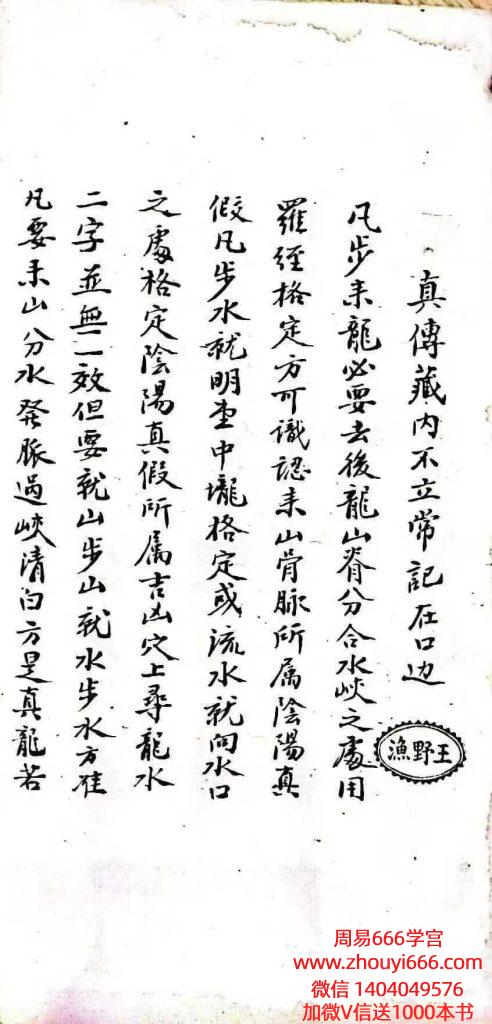 真傳藏内不立常記在口边
凡步来龍必要去後龍山脊分合水峽之處用
羅經格定方可識認来山骨脉所属陰陽真
假凡步水就明堂中壠格定或流水就向水口
之處格定陰陽真假所属吉凶穴上尋龍水
二字並無一效但要就山步山就水步水方准
凡要来山分水発脈過峽清白方是真龍若
王野漁
周易666学宫
www.zhouyi666.com
微信 1404049576
加微V信送1000本书